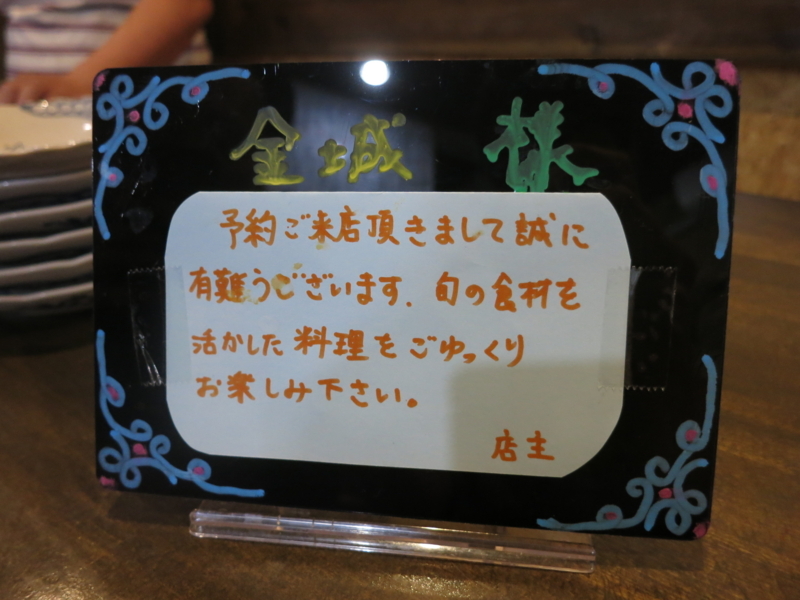 金城 様
予約ご来店頂きまして誠に
有難うございます. 旬の食材を
活かした料理をごゆっくり
お楽しみ下さい。
店主